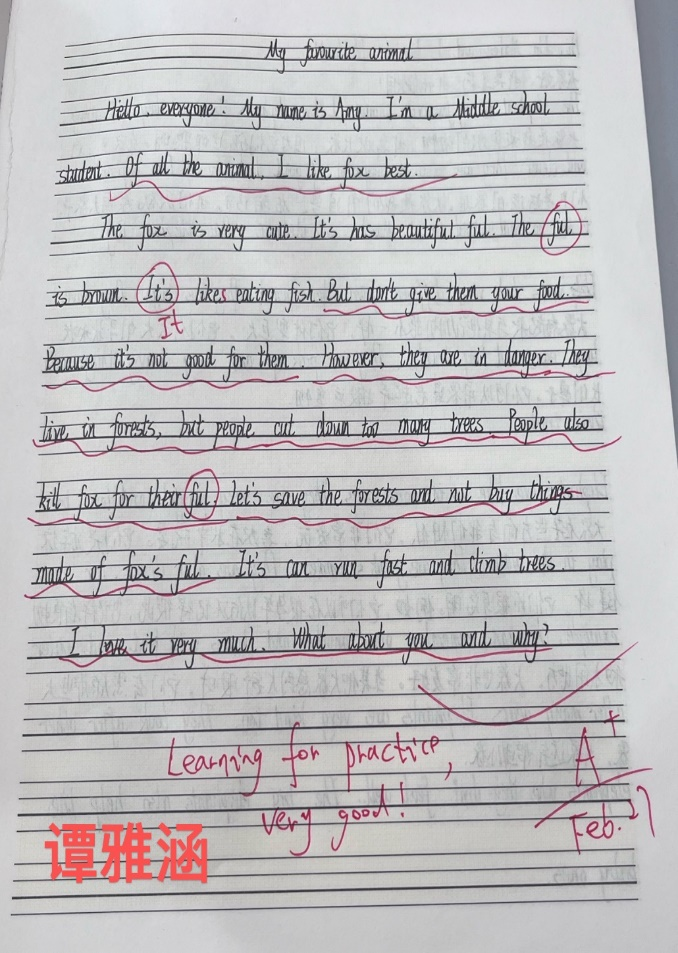 My favourite animal
Hello, everyone! My name is Amy. I'm a Middle school
student. Of all the animal, I like fox best.
The fox is very cute. It's has beautiful ful. The ful
is brown. It's likes eating fish. But don't give them your food.
It
Because it's not good for them. However, they are in danger. They
live in forests, but people cut down too many trees. People also
kill fox for their ful. Let's save the forests and not buy things
made of fox's ful. It's can run fast and climb trees.
I love it very much. What about you and why?
Learning for practice,
very good!
A+
Feb. 27
谭雅涵